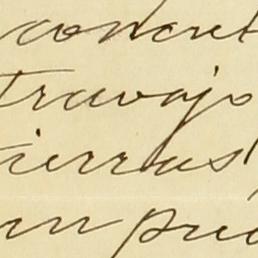 concret
travajo
tierras
un pue